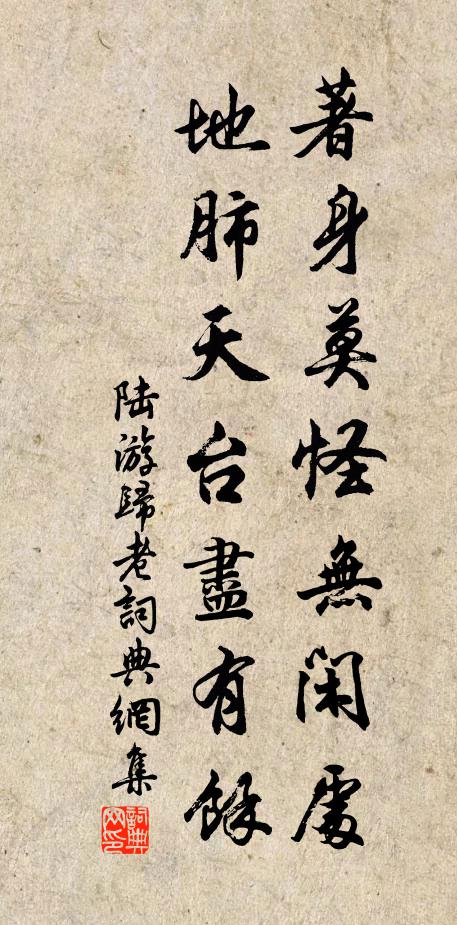 著身莫怪無閑處
地肺天台盡有餘
陸游歸老詞典網集
詞典網印